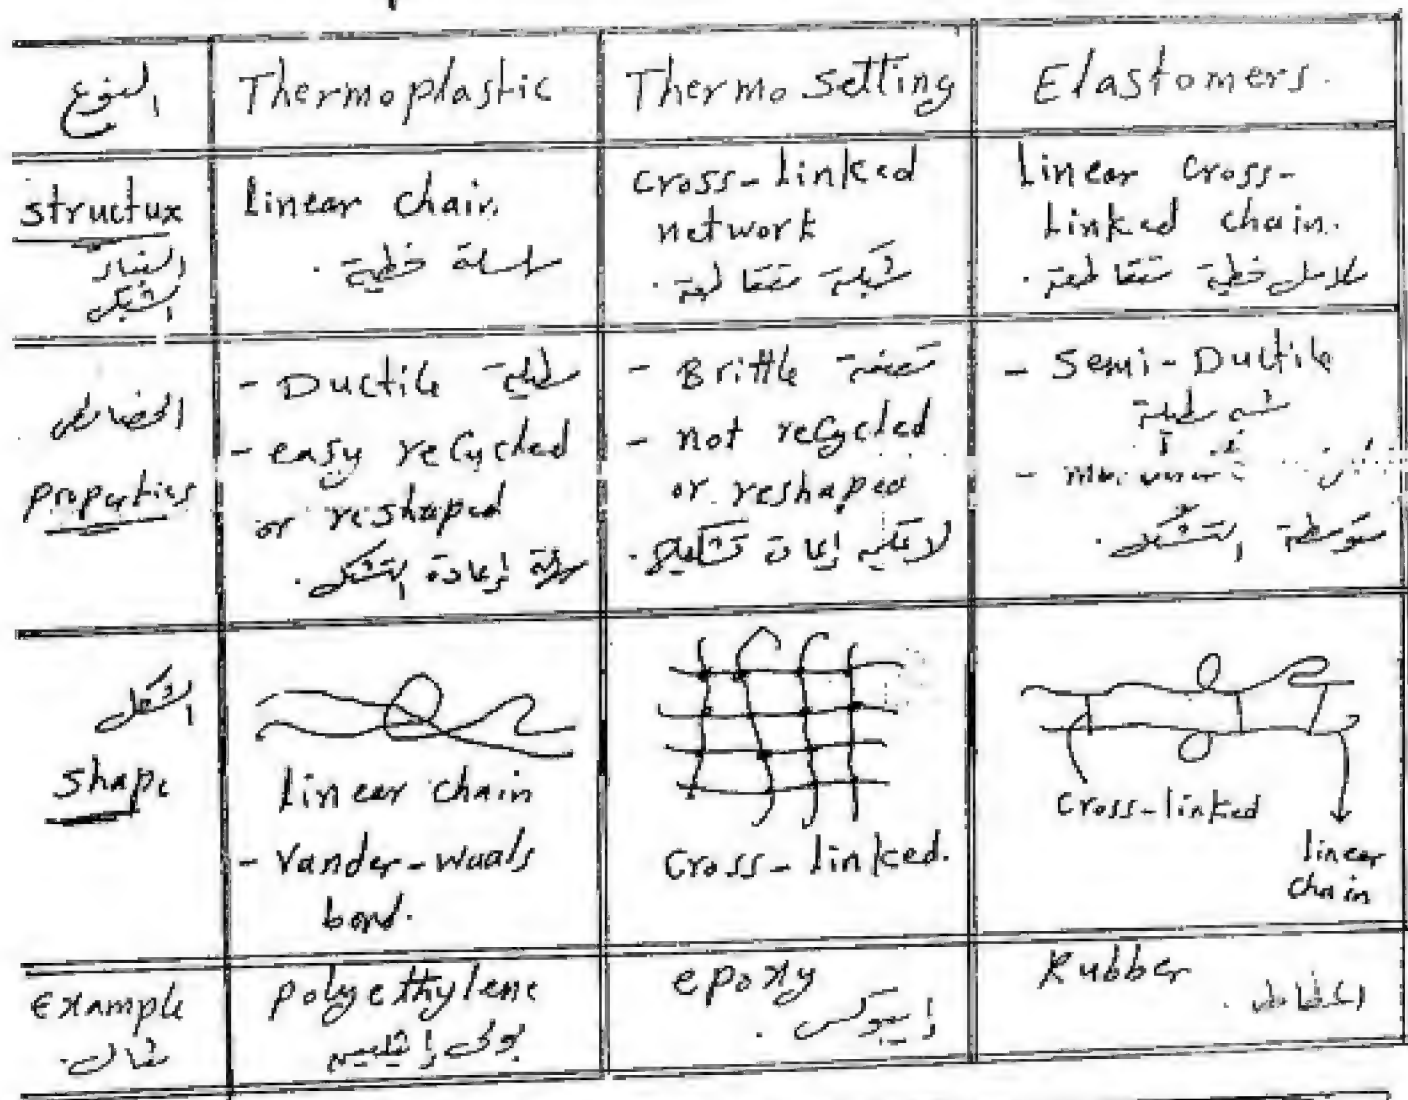 النوع
Thermoplastic
Thermo setting
Elastomers.
structux
البناء
الشبكى
Linear chain
سلسلة خطية .
cross-linked
network
شبكة متقاطعة .
Linear cross-
Linked chain.
سلاسل خطية متقاطعة .
الخصائص
properties
- Ductile
- easy recycled
or reshaped
سهلة إعادة التشكل .
- Brittle
- not recycled
or reshaped
إعادة
- Semi-Ductile
شبه
-
متوسطة التشكل .
الشكل
shape
Linear chain
- Vander-waals
bond.
cross-linked.
cross-linked
linear
chain
Example
مثال .
polyethylene
بولى إيثيلين
epoxy
إيبوكس .
Rubber
المطاط .